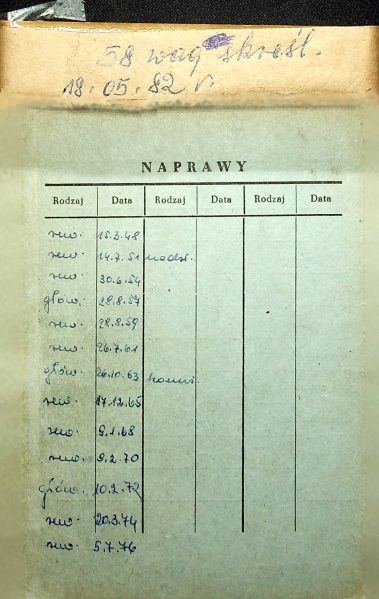 58 wag skreśl.
18.05.82 r.
NAPRAWY
Rodzaj Data Rodzaj Data Rodzaj Data
rew. 15.3.48
rew. 14.7.51 nadzw.
rew. 30.6.54
głów. 28.8.57
rew. 28.8.59
rew. 26.7.61
głów. 26.10.63
rew. 17.12.65
rew. 9.1.68
rew. 9.2.70
głów. 10.2.72
rew. 20.3.74
rew. 5.7.76